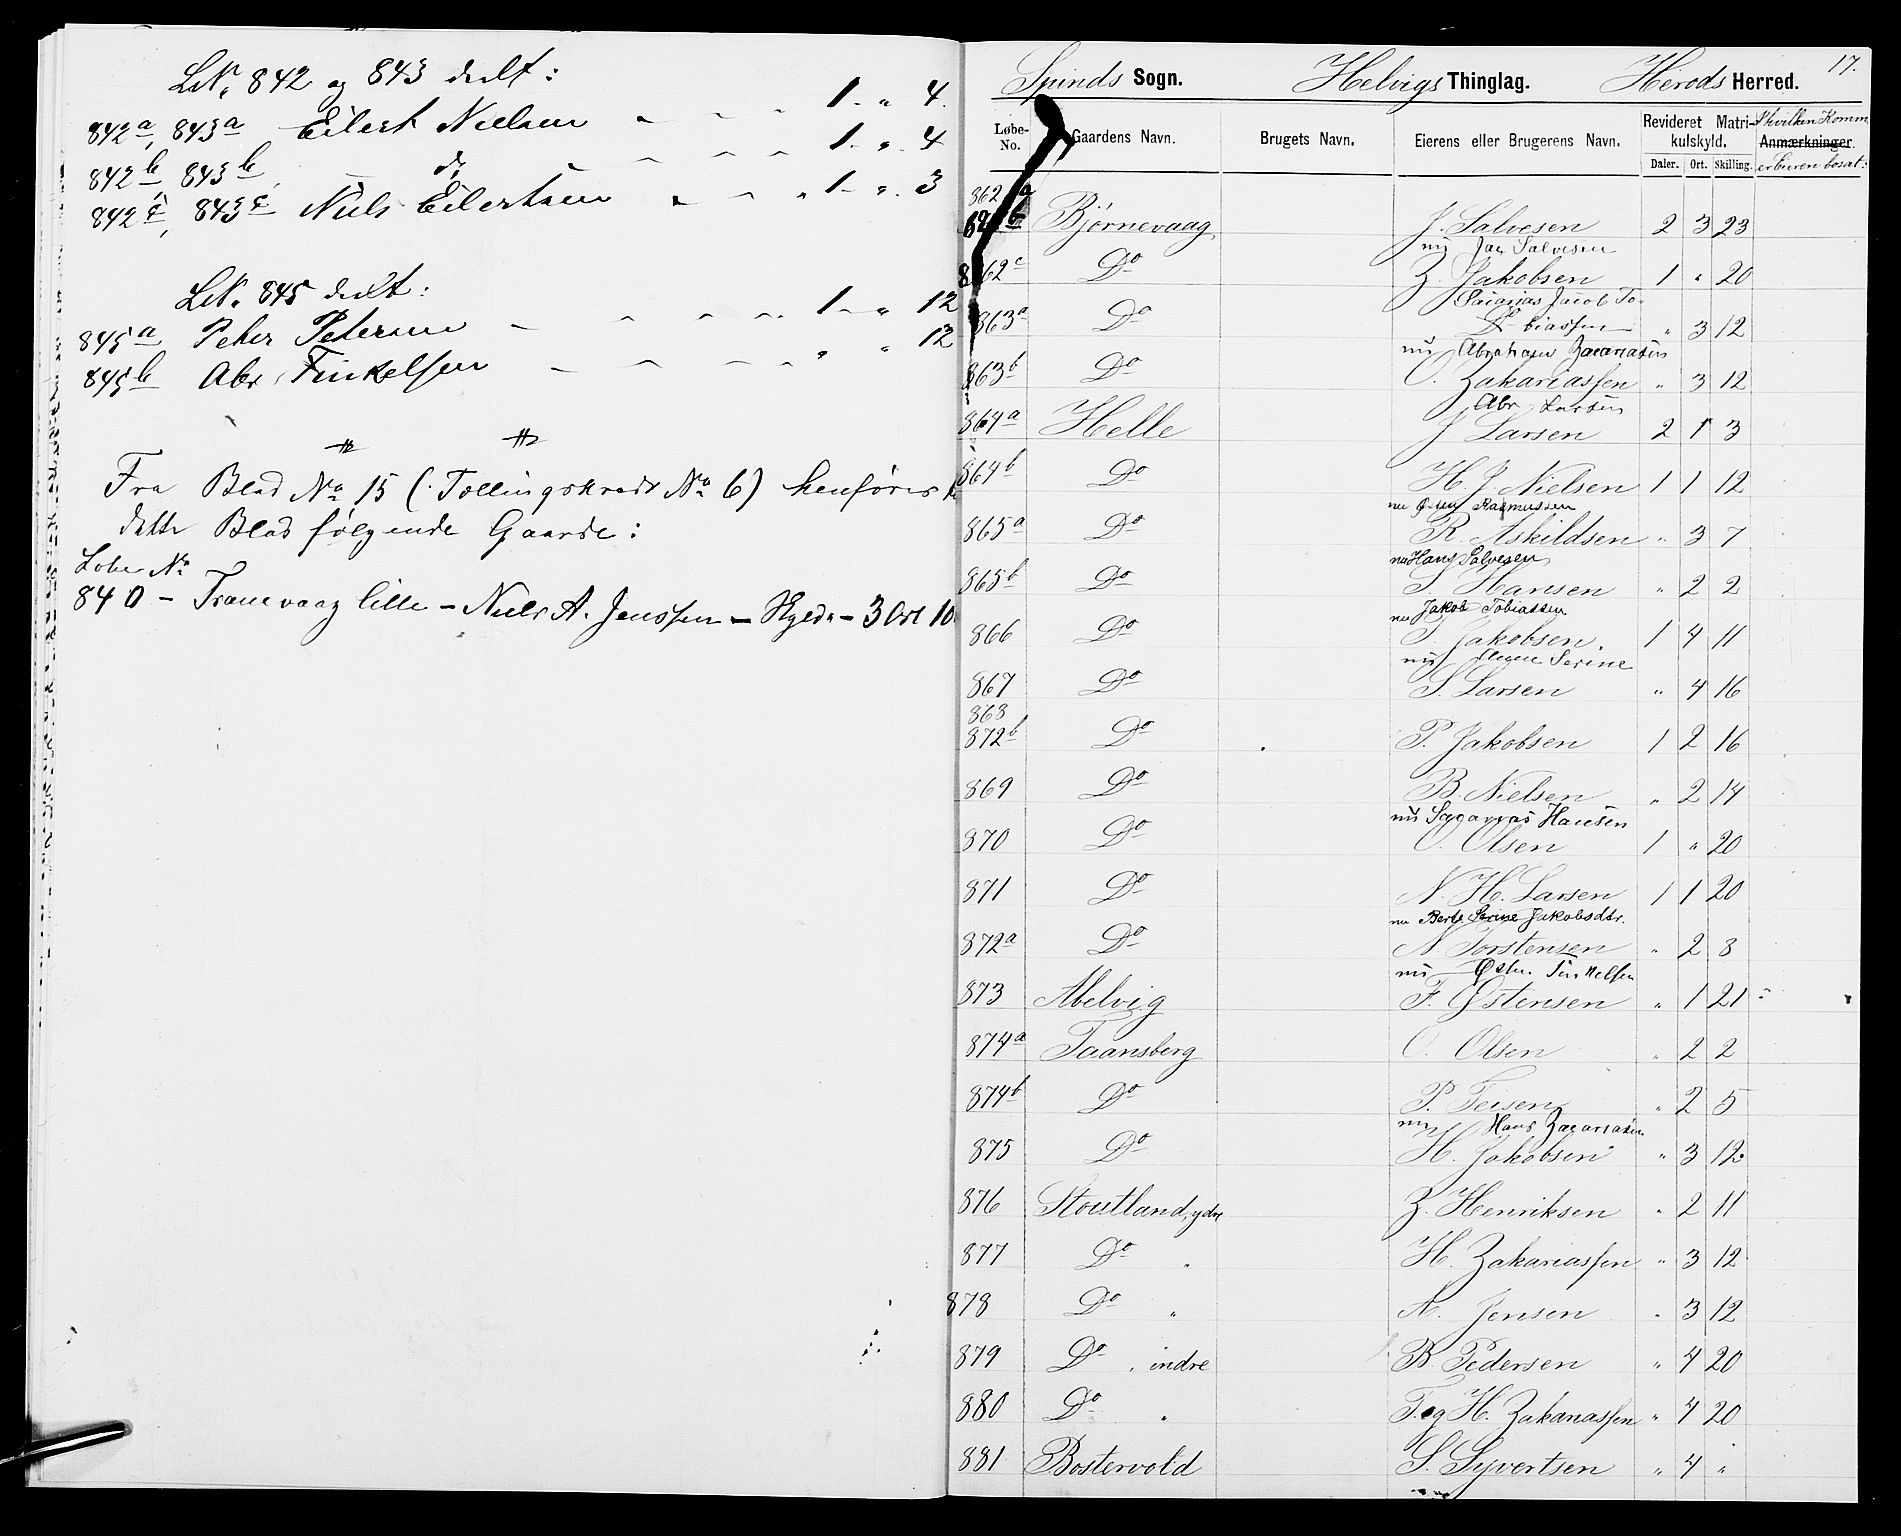 LN. 842 og 843 deelt:
842a, 843a Eilert Nielsen " " " 1 - " 4.
842b, 843b do " " " 1 - " 4
842c, 843c Niels Eilertsen " " " 1 - " 3
LN. 845 deelt:
845a Peter Petersen - " " " 1 - " 12
845b Abr. Finkelsen - " " " " " 12
Fra Blad No 15 (Tællingskreds No 6) henføres
dette Blad følgende Gaarde:
Løbe No
840 - Tranevaag lille - Niels A. Jenssen - Skyld - 3 Ort 10
17.
Spinds Sogn. Helvigs Thinglag. Herods Herred.
Løbe-No. Gaardens Navn. Brugets Navn. Eierens eller Brugerens Navn. Revideret Matrikulskyld. I hvilken Komm.
Anmærkninger.
Daler. Ort. Skilling. er Eieren bosat:
862 a
b Bjørnevaag J. Salvesen 2 3 23
nu Jan Salvesen
862c Do Z. Jakobsen 1 " 20
Sacarias Jacob To-
863a Do biassen " 3 12
nu Abraham Zacariasen
863b Do O. Zakariassen " 3 12
Abr. Larsen
864a Helle J Larsen 2 1 3
864b Do H. J. Nielsen 1 1 12
nu Østen Rasmussen
865a Do R. Askildsen " 3 7
nu Hans Salvesen
865b Do S. Hansen " 2 2
nu Jakob Tobiassen
866 Do T. Jakobsen. 1 4 11
nu Serine
867 Do S. Larsen " 4 16
868
872b Do P. Jakobsen 1 2 16
869 Do B. Nielsen " 2 14
nu Sagarias Hansen
870 Do O. Olsen 1 " 20
871 Do N. H. Larsen 1 1 20
nu Berte Serine Jakobsdtr.
872a Do N Torstensen " 2 8
nu Østen Finkelsen
873 Abelvig F. Østensen " 1 21
874a Taansberg O. Olsen " 2 2
874b Do P. Teisen " 2 5
nu Hans Zacariasen
875 Do H. Jakobsen " 3 12
876 Stoutland, ydre Z. Henriksen " 2 11
877 Do " H. Zakariassen " 3 12
878 Do " A. Jensen " 3 12
879 Do , indre B. Pedersen " 4 20
880 Do " T. og H. Zakariassen " 4 20
881 Bostervold S. Syvertsen " 4 "